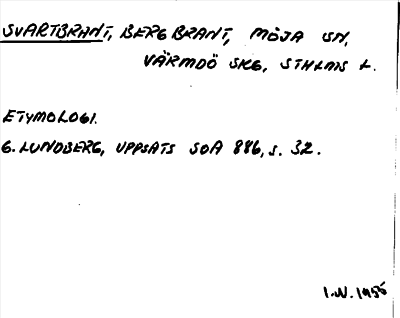 SVARTBRANT, BERGBRANT, MÖJA SN,
VÄRMDÖ SKG, STHLMS L.
ETYMOLOGI.
G. LUNDBERG, UPPSATS SOA 886, s. 32.
I.W. 1955